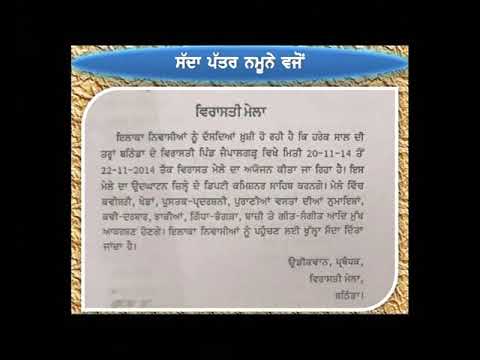 ਸੱਦਾ ਪੱਤਰ ਨਮੂਨੇ ਵਜੋਂ
ਵਿਰਾਸਤੀ ਮੇਲਾ
ਇਲਾਕਾ ਨਿਵਾਸੀਆਂ ਨੂੰ ਦੱਸਦਿਆਂ ਖ਼ੁਸ਼ੀ ਹੋ ਰਹੀ ਹੈ ਕਿ ਹਰੇਕ ਸਾਲ ਦੀ
ਤਰ੍ਹਾਂ ਬਠਿੰਡਾ ਦੇ ਵਿਰਾਸਤੀ ਪਿੰਡ ਜੈਪਾਲਗੜ੍ਹ ਵਿਖੇ ਮਿਤੀ 20-11-14 ਤੋਂ
22-11-2014 ਤੱਕ ਵਿਰਾਸਤ ਮੇਲੇ ਦਾ ਅਯੋਜਨ ਕੀਤਾ ਜਾ ਰਿਹਾ ਹੈ। ਇਸ
ਮੇਲੇ ਦਾ ਉਦਘਾਟਨ ਜ਼ਿਲ੍ਹੇ ਦੇ ਡਿਪਟੀ ਕਮਿਸ਼ਨਰ ਸਾਹਿਬ ਕਰਨਗੇ। ਮੇਲੇ ਵਿੱਚ
ਕਵੀਸ਼ਰੀ, ਖੇਡਾਂ, ਪੁਸਤਕ-ਪ੍ਰਦਰਸ਼ਨੀ, ਪੁਰਾਣੀਆਂ ਵਸਤਾਂ ਦੀਆਂ ਨੁਮਾਇਸ਼ਾਂ,
ਕਵੀ-ਦਰਬਾਰ, ਝਾਕੀਆਂ, ਗਿੱਧਾ-ਭੰਗੜਾ, ਬਾਜ਼ੀ ਤੇ ਗੀਤ-ਸੰਗੀਤ ਆਦਿ ਮੁੱਖ
ਆਕਰਸ਼ਣ ਹੋਣਗੇ। ਇਲਾਕਾ ਨਿਵਾਸੀਆਂ ਨੂੰ ਪਹੁੰਚਣ ਲਈ ਖੁੱਲ੍ਹਾ ਸੱਦਾ ਦਿੱਤਾ
ਜਾਂਦਾ ਹੈ।
ਉਡੀਕਵਾਨ, ਪ੍ਰਬੰਧਕ,
ਵਿਰਾਸਤੀ ਮੇਲਾ,
ਬਠਿੰਡਾ।